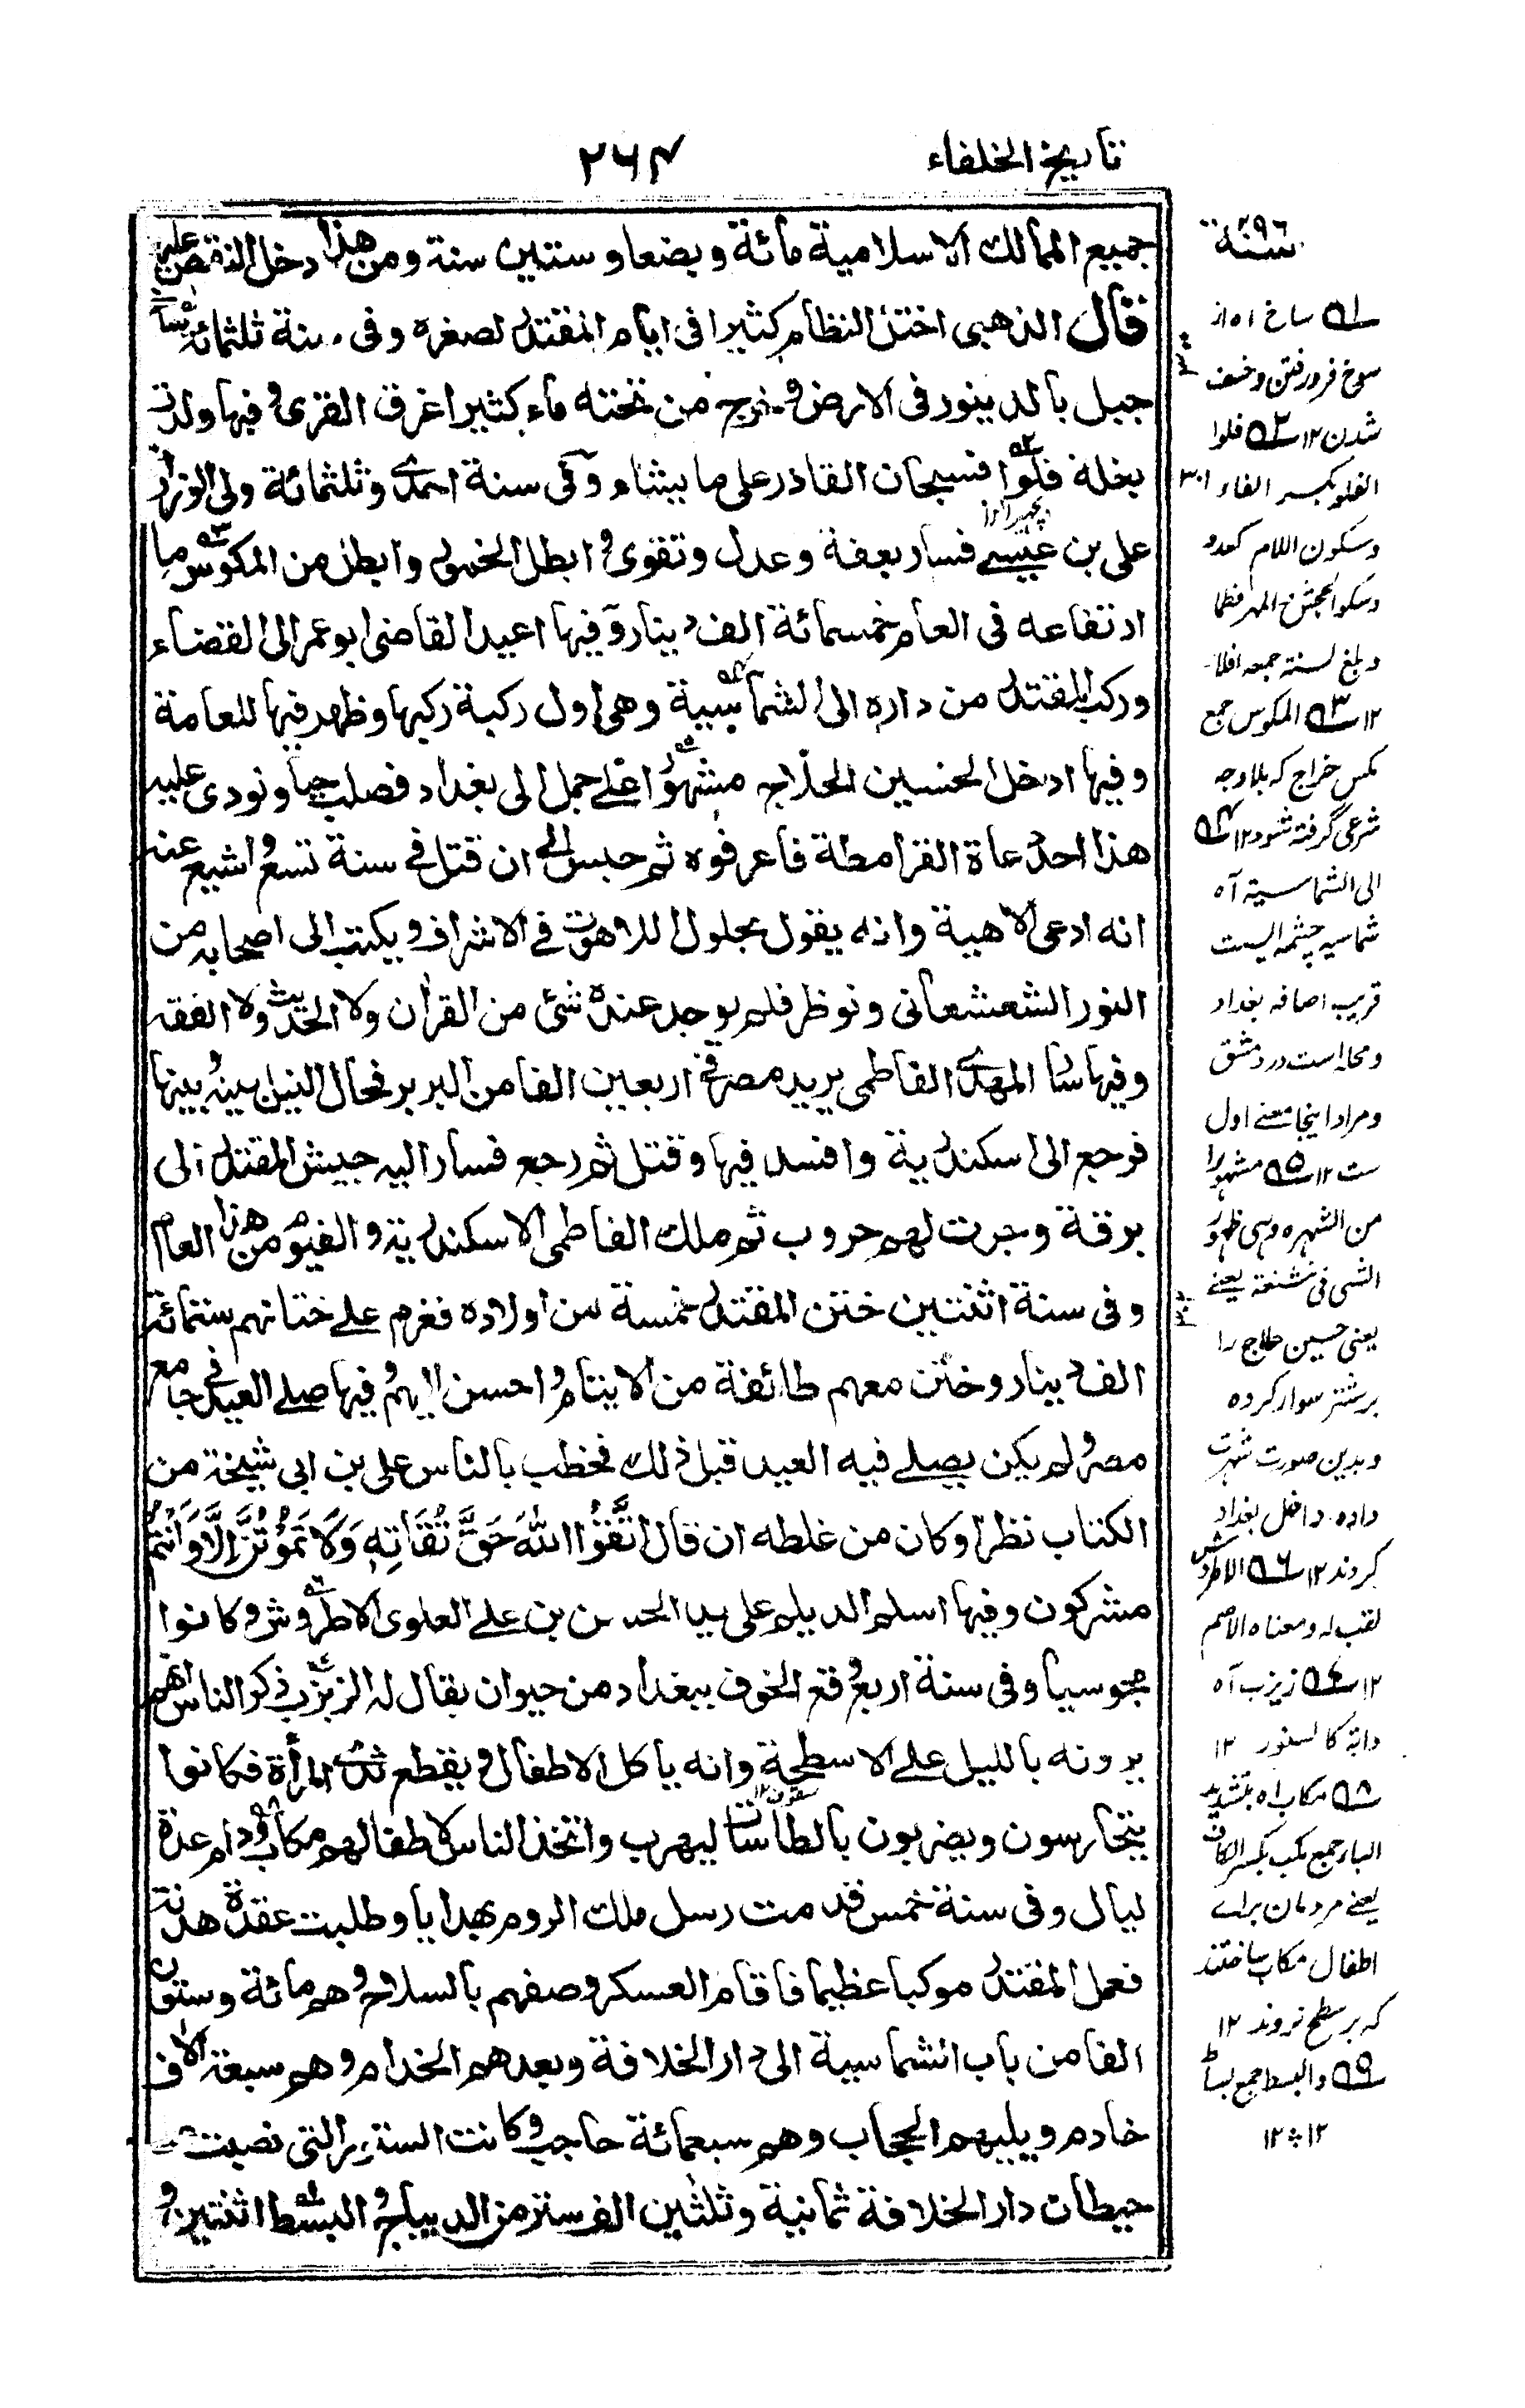 تاريخ الخلفاء ٢٦٤
جميع الممالك الاسلامية مائة وبضعا وستين سنة ومن هذا دخل النقص عليه
قال الذهبى اختل النظام كثيرا فى ايام المقتدر لصغره وفى سنة ثلثمائة ساخ
جبل بالدينور فى الارض وخرج من تحته ماء كثير اغرق القرى وفيها ولدت
بغلة فلوا فسبحان القادر على ما يشاء وفى سنة احدى وثلثمائة ولى الوزارة
على بن عيسى فسار بعفة وعدل وتقوى وابطل الخمور وابطل من المكوس ما
ارتفاعه فى العام خمسمائة الف دينار وفيها اعيد القاضى ابو عمر الى القضاء
وركب المقتدر من داره الى الشماسية وهى اول ركبة ركبها وظهر فيها للعامة
وفيها ادخل الحسين الحلاج مشهورا على جمل الى بغداد فصلب حيا ونودى عليه
هذا احد دعاة القرامطة فاعرفوه ثم حبس الى ان قتل فى سنة تسع واشيع عنه
انه ادعى الالهية وانه يقول بحلول اللاهوت فى الاشراف ويكتب الى اصحابه من
النور الشعشعانى ونوظر فلم يوجد عنده شئ من القران ولا الحديث ولا الفقه
وفيها سار المهدى الفاطمى يريد مصر فى اربعين الفا من البربر فحال النيل بينه وبينها
فرجع الى اسكندرية وافسد فيها وقتل ثم رجع فسار اليه جيش المقتدر الى
برقة وجرت لهم حروب ثم ملك الفاطمى الاسكندرية والفيوم من هذا العام
وفى سنة اثنتين ختن المقتدر خمسة من اولاده فغرم على ختانهم ستمائة
الف دينار وختن معهم طائفة من الايتام واحسن اليهم وفيها صلى العيد فى جامع
مصر ولم يكن يصلى فيه العيد قبل ذلك فخطب بالناس على بن ابى شيخة من
الكتاب نظرا وكان من غلطه ان قال اتَّقُوا اللهَ حَقَّ تُقَاتِهٖ وَلَا تَمُوْتُنَّ اِلَّا وَاَنْتُمْ
مشركون وفيها اسلم الديلم على يد الحسن بن على العلوى الاطروش وكانوا
مجوسيا وفى سنة اربع وقع الخوف ببغداد من حيوان يقال له الزبزب ذكر الناس انهم
يرونه بالليل على الاسطحة وانه ياكل الاطفال ويقطع ثدى المرأة فكانوا
يتحارسون ويضربون بالطاسات ليهرب واتخذ الناس لاطفالهم مكاب ودام عدة
ليال وفى سنة خمس قدمت رسل ملك الروم بهدايا وطلبت عقدة هدنة
فعمل المقتدر موكبا عظيما فاقام العسكر وصفهم بالسلاح وهم مائة وستون
الفا من باب الشماسية الى دار الخلافة وبعدهم الخدام وهم سبعة الاف
خادم ويليهم الحجاب وهم سبعمائة حاجب وكانت الستور التى نصبت على
حيطان دار الخلافة ثمانية وثلثين الف ستر من الديباج والبسط اثنتين و
سنة ٢٩٦
٥١ ساخ اه از
سوخ فرو رفتن وخسف
شدن ١٢ ٥٢ فلوا
الفلو بكسر الفاء
وسكون اللام كعدو
وبلغ السنة جمعه افلاء
١٢ ٥٣ المكوس جمع
مكس خراج كه بلا وجه
شرعى گرفته شود ١٢ ٥٤
الى الشماسية آه
شماسيه چشمه ايست
قريب اصافه بغداد
ومحله است در دمشق
ومراد اينجا معنے اول
ست ١٢ ٥٥ مشهورا
من الشهره وهى ظهور
الشى فى شنعة يعنے
يعنى حسين حلاج را
بر شتر سوار كرده
وبدين صورت شهرت
داده داخل بغداد
كردند ١٢ ٥٦ الاطروش
لقب له ومعناه الاصم
١٢ ٥٧ زبزب آه
دابة كالسنور ١٢
٥٨ مكاب اه بتشديد
الباء جمع مكب بكسر الكاف
يعنے مردمان براے
اطفال مكاب ساختند
كه بر سطح نروند ١٢
٥٩ والبسط جمع بساط
١٢ ٪ ١٢